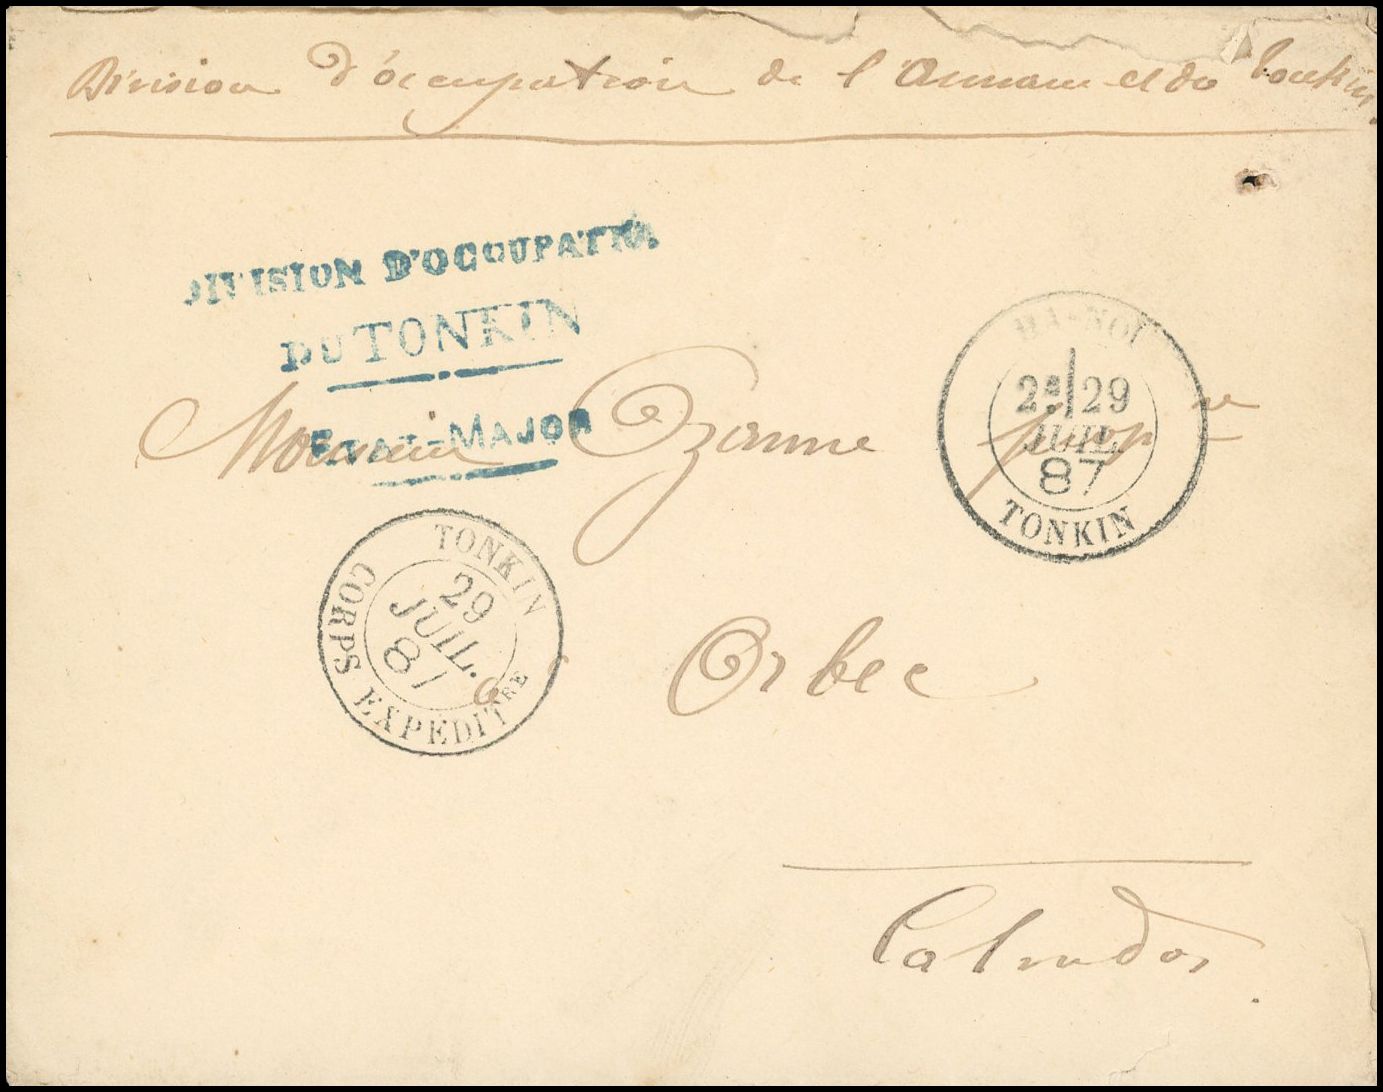 Division d'occupation de l'Annam et du Tonkin.
DIVISION D'OCCUPATION
DU TONKIN
ETAT-MAJOR
HA-NOI
2E/29
JUIL.
87
TONKIN
Monsieur Ozanne prop re
TONKIN
29
JUIL.
87
CORPS EXPEDITRE
à Orbec
Calvados.